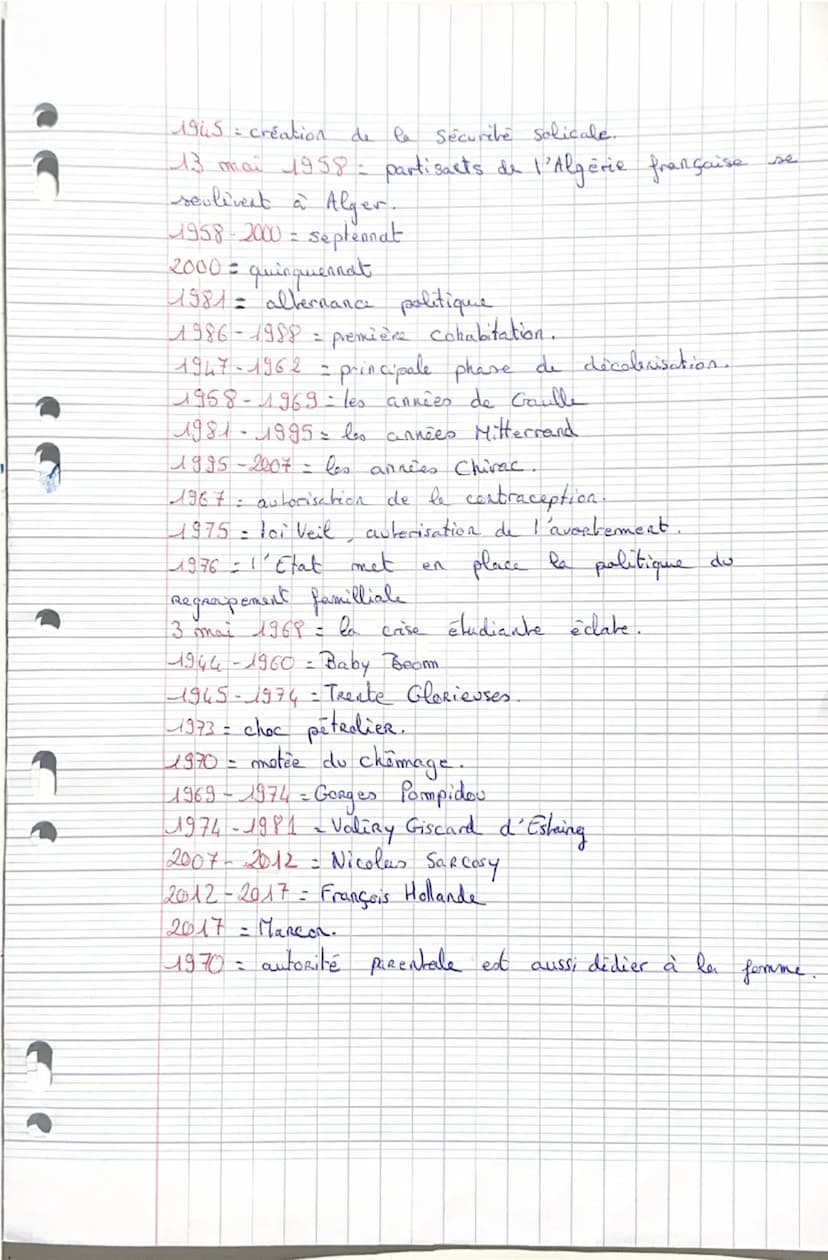 1945 = création de la sécurité solicale.
13 mai 1958 = partisats de l'Algérie française se
soulivent à Alger.
1958 - 2000 = septennat
2000 = quinquennat
1981 = alternance politique
1986 - 1988 = première cohabitation.
1947 - 1962 = principale phase de décolonisation.
1958 - 1969 = les années de Gaulle
1981 - 1995 = les années Mitterrand
1995 - 2007 = les années Chirac.
1967 = autorisation de la contraception.
1975 = loi Veil, autorisation de l'avortement.
1976 = l'Etat met en place la politique du
Regroupement familliale
3 mai 1968 = la crise étudiante éclate.
1944 - 1960 = Baby Boom
1945 - 1974 = Trente Glorieuses.
1973 = choc pétrolier.
1970 = motée du chômage.
1969 - 1974 = Gorges Pompidou
1974 - 1981 = Valéry Giscard d'Estaing
2007 - 2012 = Nicolas Sarcosy
2012 - 2017 = François Hollande
2017 = Marcon.
1970 = autorité parentale est aussi didier à la femme.